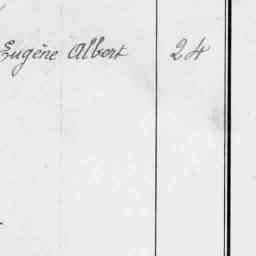 Eugène Albert 24